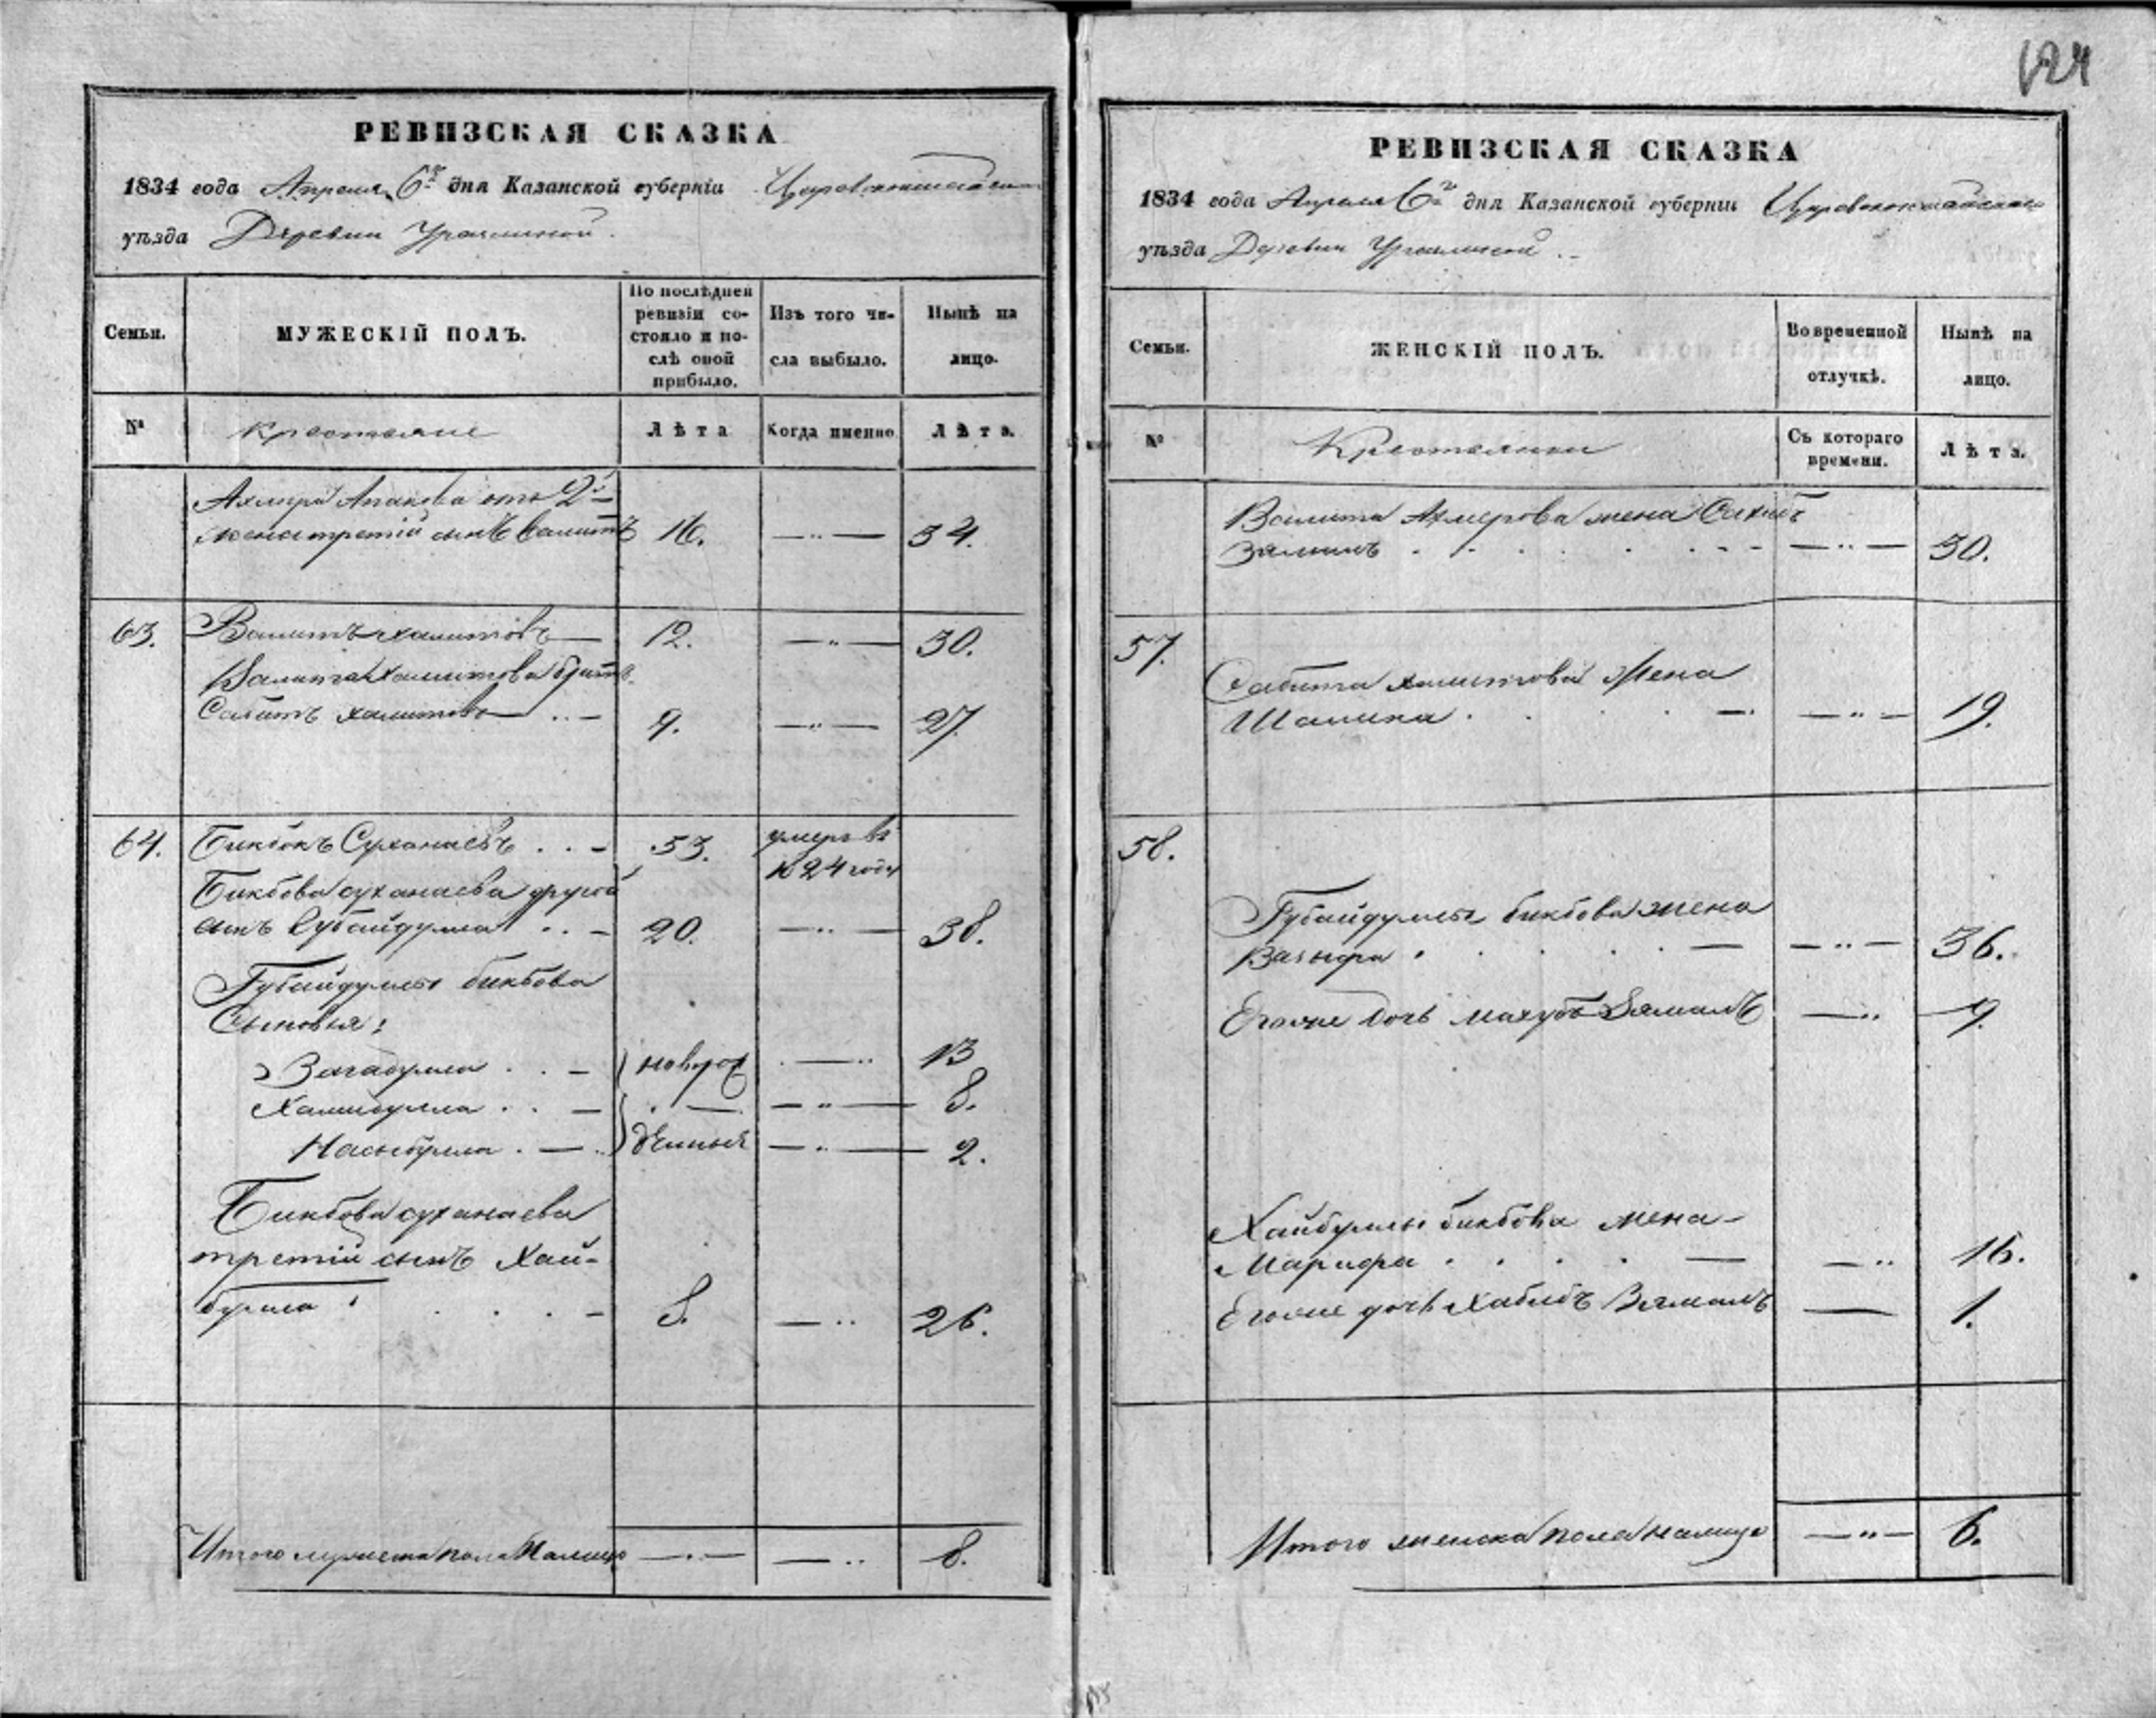 124
РЕВИЗСКАЯ СКАЗКА
1834 года Апреля 6го дня Казанской губерніи Царевококшайскаго
уѣзда Деревни
Семьи.
МУЖЕСКІЙ ПОЛЪ.
По послѣдней ревизіи состояло и послѣ оной прибыло.
Изъ того числа выбыло.
Нынѣ на лицо.
№
крестьяне
Лѣта
Когда именно
Лѣта.
Ахмера Апакова отъ 2й
жены третій сынъ Валитъ 16. —"— 34.
63. Валитъ Халитовъ — 12. —"— 30.
Валита Халитова братъ
Сабитъ Халитовъ 9. —"— 27.
64. Бикбовъ Суханаевъ . . — 53. умеръ въ
1824 году
Бикбова Суханаева другой
сынъ Губайдулла . . — 20. —"— 38.
Губайдуллы Бикбова
Сыновья:
Загадулла . . — новорож —" 13
Хамидулла . . — . — —"— 8.
Насыбулла . — денныя —"— 2.
Бикбова Суханаева
третій сынъ Хай-
булла . . . — 8. —" 26.
Итого мужеска пола налицо —"— —" 8.
РЕВИЗСКАЯ СКАЗКА
1834 года Апреля 6го дня Казанской губерніи Царевококшайскаго
уѣзда Деревни
Семьи.
ЖЕНСКІЙ ПОЛЪ.
Во временной отлучкѣ.
Нынѣ на лицо.
№
Крестьянки
Съ котораго времени.
Лѣта.
Валита Ахмерова жена Сахибъ
Зямалъ . . . . . — —"— 30.
57. Сабита Халитова Жена
Шамика . . . . — —"— 19.
58.
Губайдуллы Бикбова жена
. . . . — —"— 36.
Его же дочь Махубъ Зямалъ —" 9.
Хайбуллы Бикбова жена —
Марифа . . . . — —" 16.
Его же дочь Хабибъ Зямалъ — 1.
Итого женска пола налицо —"— 6.